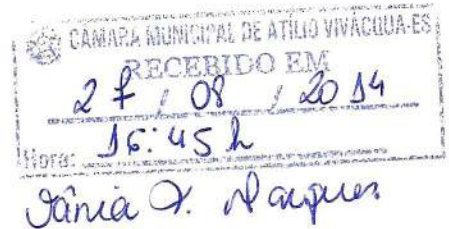 CÂMARA MUNICIPAL DE ATÍLIO VIVÁCQUA-ES
RECEBIDO EM
27 / 08 / 2014
Hora: 16:45 h
Vânia